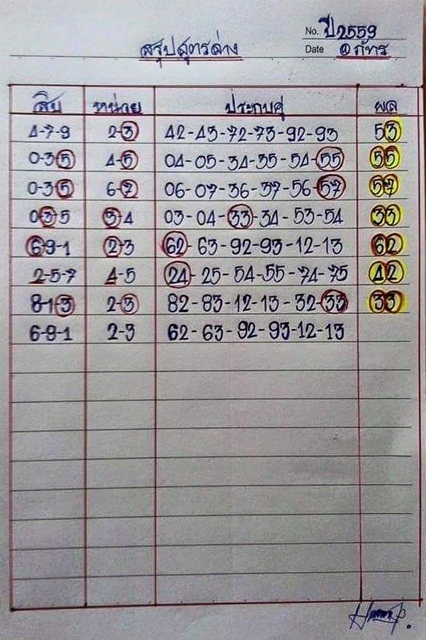 No. ปี2559
สรุปสูตรล่าง Date @ภัทร
สิบ หน่วย ประกบคู่ ผล
4-7-9 2-3 42-43-72-73-92-93 53
0-3-5 4-5 04-05-34-35-54-55 55
0-3-5 6-7 06-07-36-37-56-57 57
0-3-5 3-4 03-04-33-34-53-54 33
6-9-1 2-3 62-63-92-93-12-13 62
2-5-7 4-5 24-25-54-55-74-75 42
8-1-3 2-3 82-83-12-13-32-33 33
6-9-1 2-3 62-63-92-93-12-13